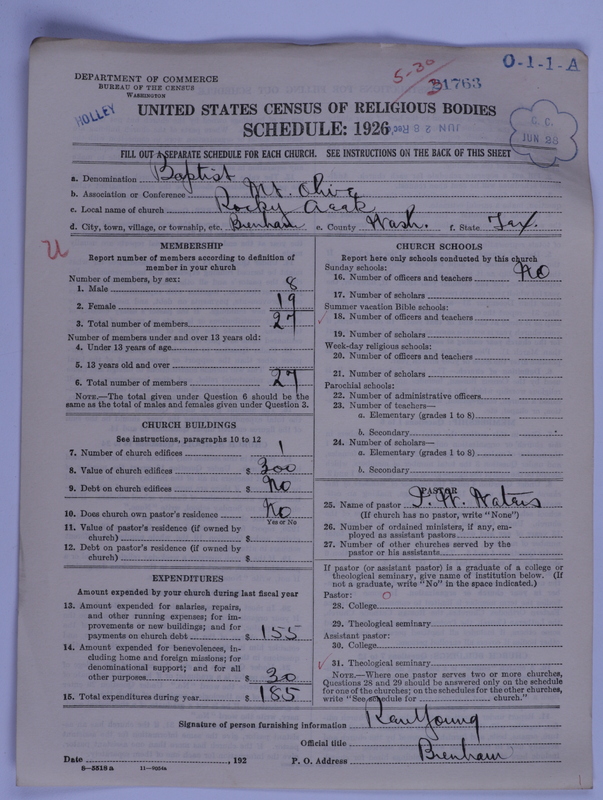 DEPARTMENT OF COMMERCE
BUREAU OF THE CENSUS
WASHINGTON
HOLLEY
5-30
31763
O-1-1-A
UNITED STATES CENSUS OF RELIGIOUS BODIES
SCHEDULE: 1926
Rec'd JUN 28
C. C.
JUN 28
FILL OUT A SEPARATE SCHEDULE FOR EACH CHURCH. SEE INSTRUCTIONS ON THE BACK OF THIS SHEET
a. Denomination Baptist
b. Association or Conference Mt. Olive
c. Local name of church Rocky Creek
d. City, town, village, or township, etc. Brenham e. County Wash. f. State Tex.
U
MEMBERSHIP
Report number of members according to definition of
member in your church
Number of members, by sex:
1. Male 8
2. Female 19
3. Total number of members 27
Number of members under and over 13 years old:
4. Under 13 years of age
5. 13 years old and over
6. Total number of members 27
NOTE.—The total given under Question 6 should be the
same as the total of males and females given under Question 3.
CHURCH BUILDINGS
See instructions, paragraphs 10 to 12
7. Number of church edifices 1
8. Value of church edifices $ 300
9. Debt on church edifices $ No
10. Does church own pastor's residence No
Yes or No
11. Value of pastor's residence (if owned by
church) $
12. Debt on pastor's residence (if owned by
church) $
EXPENDITURES
Amount expended by your church during last fiscal year
13. Amount expended for salaries, repairs,
and other running expenses; for im-
provements or new buildings; and for
payments on church debt $ 155
14. Amount expended for benevolences, in-
cluding home and foreign missions; for
denominational support; and for all
other purposes $ 30
15. Total expenditures during year $ 185
CHURCH SCHOOLS
Report here only schools conducted by this church
Sunday schools:
16. Number of officers and teachers No
17. Number of scholars
Summer vacation Bible schools:
18. Number of officers and teachers
19. Number of scholars
Week-day religious schools:
20. Number of officers and teachers
21. Number of scholars
Parochial schools:
22. Number of administrative officers
23. Number of teachers—
a. Elementary (grades 1 to 8)
b. Secondary
24. Number of scholars—
a. Elementary (grades 1 to 8)
b. Secondary
PASTOR
25. Name of pastor W. Waters
(If church has no pastor, write "None")
26. Number of ordained ministers, if any, em-
ployed as assistant pastors
27. Number of other churches served by the
pastor or his assistants
If pastor (or assistant pastor) is a graduate of a college or
theological seminary, give name of institution below. (If
not a graduate, write "No" in the space indicated.)
Pastor: O
28. College
29. Theological seminary
Assistant pastor:
30. College
31. Theological seminary
NOTE.—Where one pastor serves two or more churches,
Questions 28 and 29 should be answered only on the schedule
for one of the churches; on the schedules for the other churches,
write "See schedule for church."
Signature of person furnishing information Young
Official title
Date , 192 P. O. Address Brenham
6—5518a 11—9054a